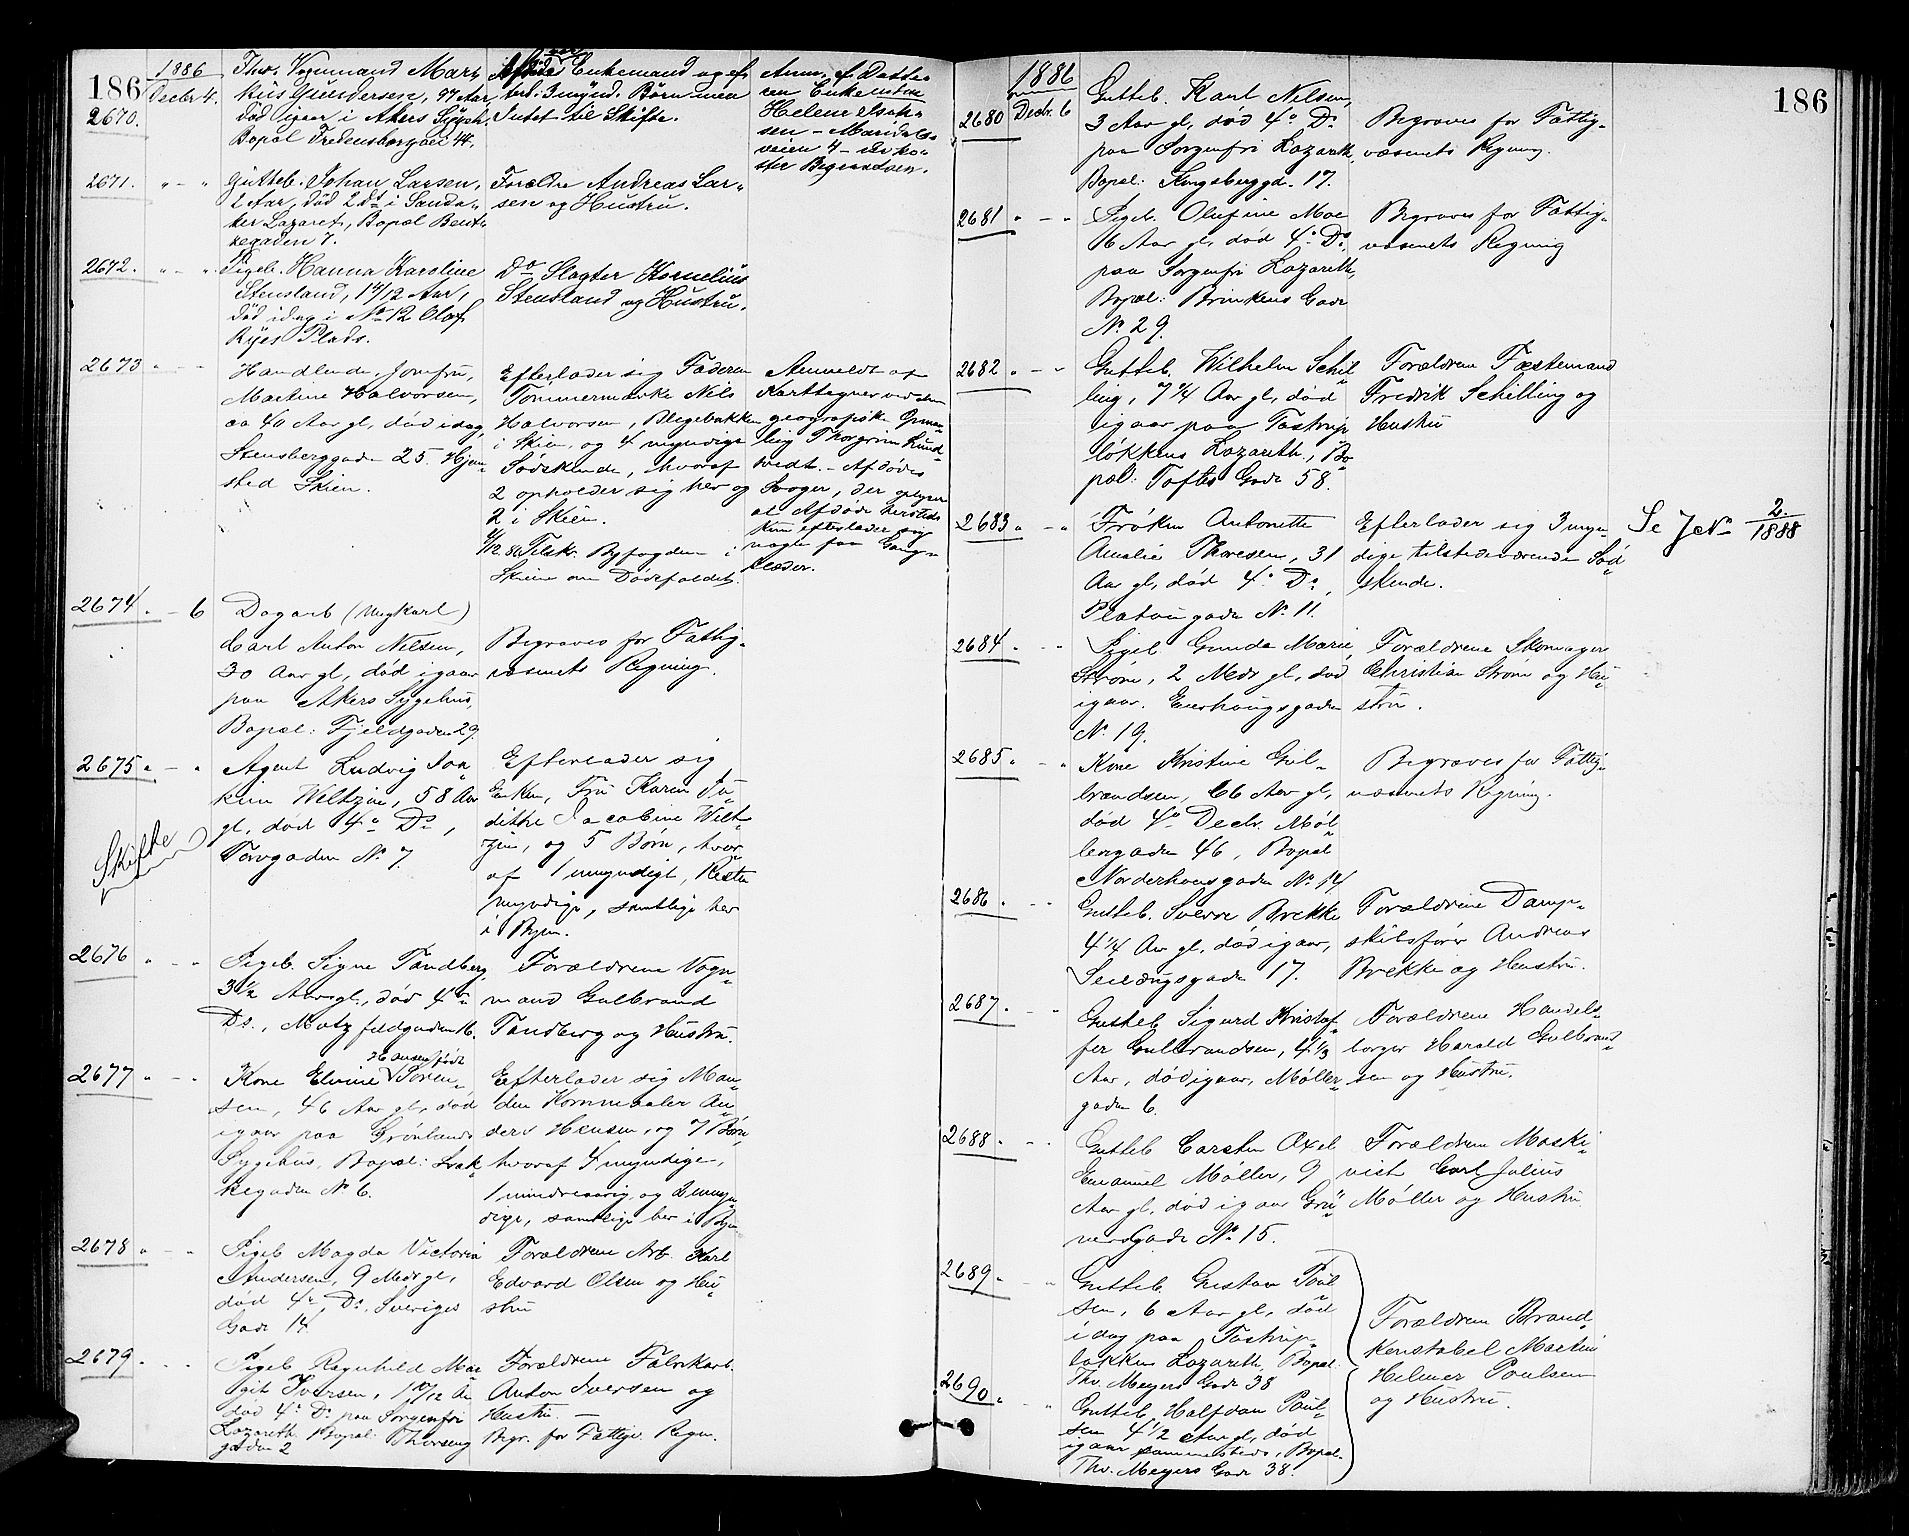 186
1886
Decbr 4.
2670.
Thv. Vognmand Mar-
kus Gundersen, 97 Aar,
død igaar i Akers Sygeh.
Bopæl Fredensborgvei 44.
Enkemand og ef-
terl. 3 mynd. Børn men
Intet til Skifte.
Anm. af Datte-
ren Enkefru
Helene Isak-
sen - Maridals-
veien 4 - beko-
ster Begravelsen.
2671. " - "
Gutteb. Johan Larsen,
2 Aar, død 2 ds i Sanda-
ker Lazaret, Bopæl Bent-
segaden 7.
Forældre Andreas Lar-
sen og Hustru.
2672. " - "
Pigeb. Hanna Karoline
Stensland, 1 11/12 Aar,
død idag i No 12 Olaf
Ryes Plads.
Do Slagter Kornelius
Stensland og Hustru.
2673 " - "
Handlende, Jomfru,
Martine Halvorsen,
ca 40 Aar gl, død idag,
Stensberggaden 25. Hjem-
sted Skien.
Efterlader sig Faderen
Tømmermærker Nils
Halvorsen, Blegebakken
i Skien, og 4 myndige
Sødskende, hvoraf
2 opholder sig her og
2 i Skien.
Tilskr. Byfogden i
Skien om Dødsfaldet.
Anmeldt af
Karttegner ved den
geografiske Opmaa-
ling Thorgrim Lund-
vedt. - Afdødes
Svoger, der oplyser
at Afdøde hersteds
kun efterlader sig
nogle faa Gang-
klæder.
2674 " - 6
Dagarb (Ungkarl)
Carl Anton Nilsen,
30 Aar gl, død igaar
paa Akers Sygehus,
Bopæl: Fjeldgaden 29.
Begraves for Fattig-
væsenets Regning.
2675 " - "
Skifte
Agent Ludvig Joa-
kim Weltzin, 58 Aar
gl, død 4de Ds,
Torvgaden No 7.
Efterlader sig
Enken, Fru Karen Ju-
dithe Jacobine Welt-
zin, og 5 Børn, hvor-
af 1 umyndigt, Resten
myndige, samtlige her
i Byen.
2676 " - "
Pigeb. Signe Tandberg,
3 1/2 Aar gl, død 4de
Ds., Motzfeldgaden 16.
Forældrene Vogn-
mand Gulbrand
Tandberg og Hustru.
2677 " - "
Kone Elvine Hansen født Søren-
sen, 46 Aar gl, død
igaar paa Grønlands
Sygehus, Bopæl: Lak-
kegaden No 6.
Efterlader sig Man-
den Kornmaaler An-
ders Hansen, og 7 Børn
hvoraf 4 myndige,
1 mindreaarig og 2 umyn-
dige, samtlige her i Byen
2678 " - "
Pigeb Magda Victoria
Andersen, 9 Mdr gl,
død 4de Ds, Sveriges
Gade 14
Forældrene Arb. Karl
Edvard Olsen og Hu-
stru
2679 " - "
Pigeb Ragnhild Mar-
git Iversen, 1 10/12 Aar
død 4de Ds paa Sorgenfri
Lazareth Bopæl: Thorseng
gaden 2
Forældrene Fabrikarb.
Anton Iversen og
Hustru. -
Begr. for Fattigv. Regn.
186
1886
2680 Decbr. 6
Gutteb. Karl Nilsen,
3 Aar gl, død 4de Ds
paa Sorgenfri Lazareth,
Bopæl: Kongsberggd. 17.
Begraves for Fattig-
væsenets Regning.
2681 " - "
Pigeb. Olufine Moe
16 Aar gl, død 4de Ds,
paa Sorgenfri Lazareth,
Bopæl: Brinkens Gade
No 29.
Begraves for Fattig-
væsenets Regning
2682 " - "
Gutteb. Wilhelm Schil-
ling, 7 1/4 Aar gl, død
igaar paa Tostrup-
løkkens Lazareth, Bo-
pæl: Toftes Gade 58.
Forældrene Fæstemand
Fredrik Schilling og
Hustru
2683 " - "
Frøken Antonette
Amalie Thoresen, 31
Aar gl, død 4de Ds,
Platougaden No 11.
Efterlader sig 3 myn-
dige tilstedeværende Sød-
skende.
Se J No 2/1888
2684 " - "
Pigeb Gunda Marie
Strøm, 2 Mdr gl, død
igaar. Enerhaugsgaden
No 19.
Forældrene Skomager
Christian Strøm og Hu-
stru.
2685 " - "
Kone Kristine Gul-
brandsen, 66 Aar gl,
død 4de Decbr. Møl-
lergaden 46, Bopæl
Norderhovsgaden No 14
Begraves for Fattig-
væsenets Regning.
2686 " - "
Gutteb. Sverre Brekke
4 1/4 Aar gl, død igaar,
Seildugsgaden 17.
Forældrene Damp-
skibsfører Andreas
Brekke og Hustru.
2687 " - "
Gutteb Sigurd Kristof-
fer Gulbrandsen, 4 1/3
Aar, død igaar, Møller-
gaden 6.
Forældrene Handels-
borger Harald Gulbrand-
sen og Hustru.
2688 " - "
Gutteb Carsten Axel
Emanuel Møller, 9
Aar gl, død igaar Grü-
nersgade No 15.
Forældrene Maski-
nist Carl Julius
Møller og Hustru
2689 " - "
Gutteb Gustav Poul-
sen, 6 Aar gl, død
idag paa Tostrup-
løkkens Lazareth, Bopæl
Thv. Meyers Gade 38
2690 " - "
Gutteb. Halfdan Poul-
sen 4 1/2 Aar gl, død
igaar sammesteds, Bopæl
Thv. Meyers Gade 38.
Forældrene Brand-
konstabel Martin
Helmer Poulsen
og Hustru.